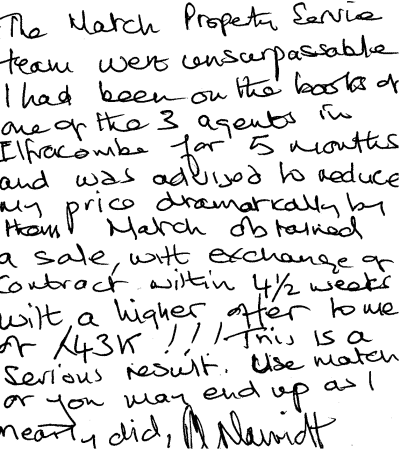 The Match Property Service
team were unsurpassable
I had been on the books of
one of the 3 agents in
Ilfracombe for 5 months
and was advised to reduce
my price dramatically by
them Match obtained
a sale, with exchange of
contract within 4½ weeks
with a higher offer to me
of £43K !!! This is a
serious result. Use Match
or you may end up as I
nearly did,